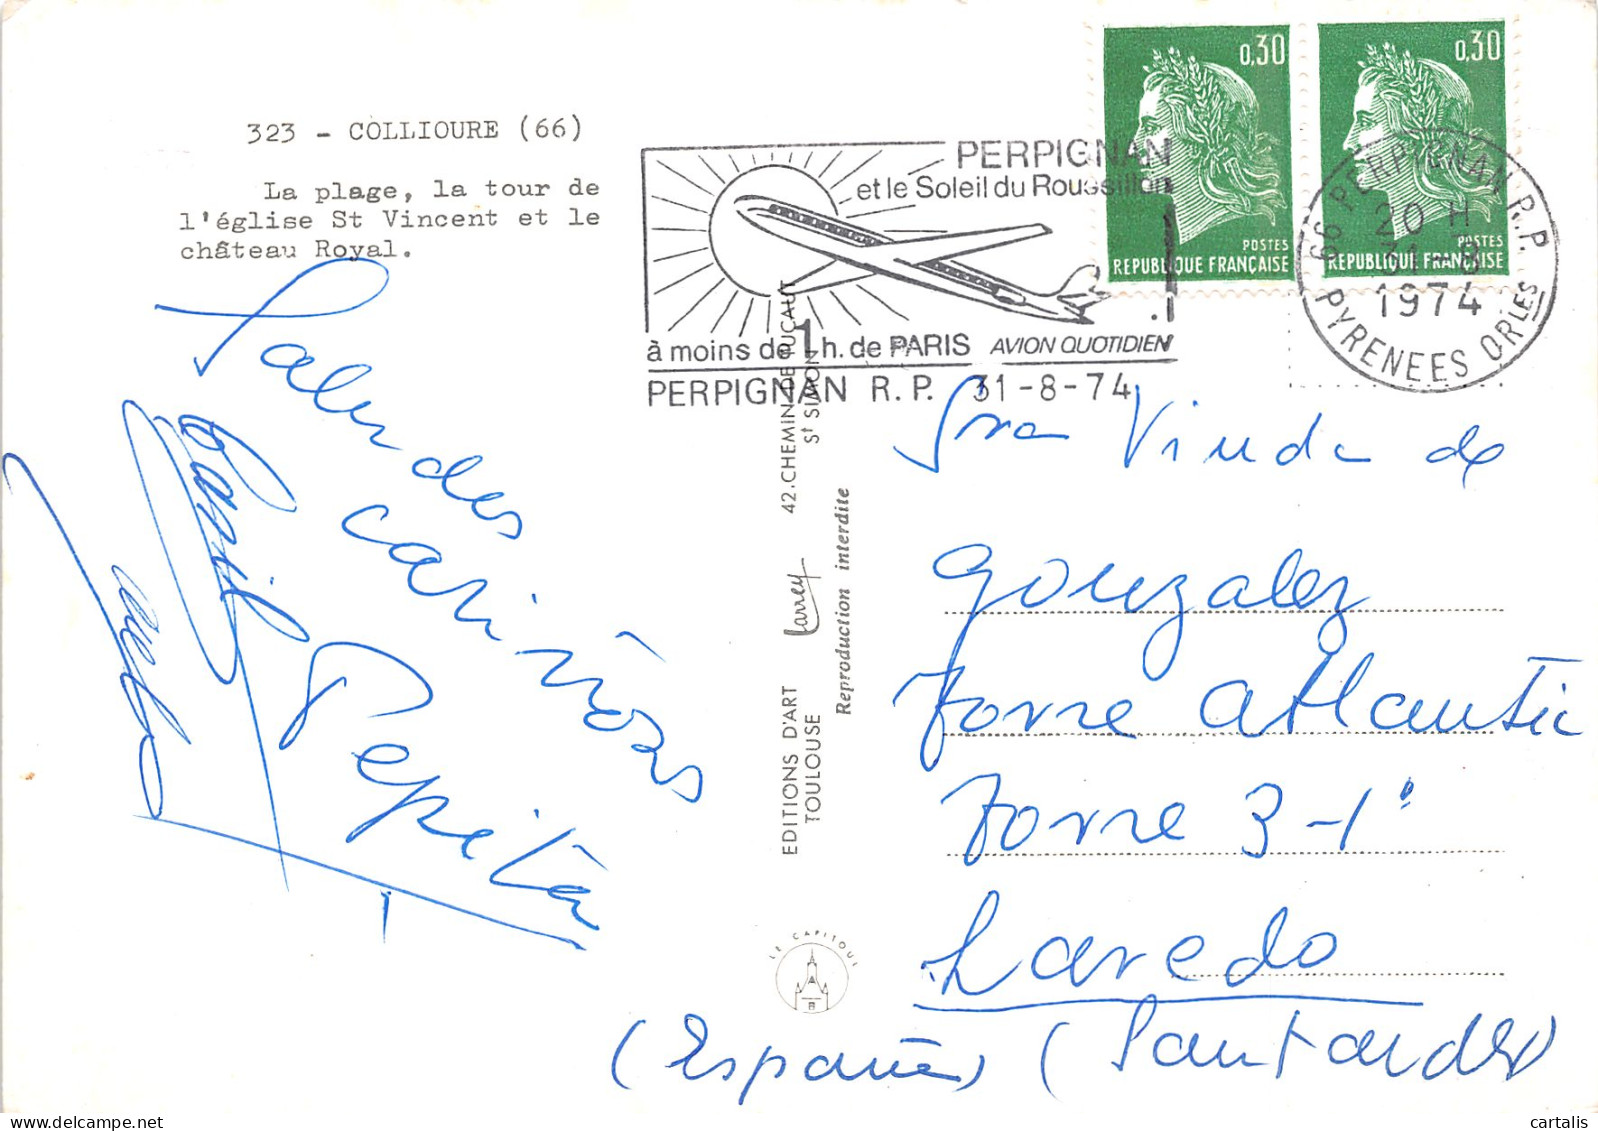 323 - COLLIOURE (66)
La plage, la tour de
l'église St Vincent et le
château Royal.
PERPIGNAN
et le Soleil du Roussillon
à moins de 1 h. de PARIS AVION QUOTIDIEN
PERPIGNAN R.P. 31-8-74
0,30
POSTES
REPUBLIQUE FRANÇAISE
0,30
POSTES
REPUBLIQUE FRANÇAISE
66 PERPIGNAN R.P.
20 H
31-8
1974
PYRENEES ORLES
Saludes
cariñosos
Pepita
EDITIONS D'ART Larrey 42. CHEMIN DE DUCAUT
TOULOUSE St SIMON
Reproduction interdite
LE CAPITOUL
Sra Viuda de
Gonzalez
Torre Atlantic
Torre 3-1º
Laredo
(España) (Santander)
cartalis
delcampe.net